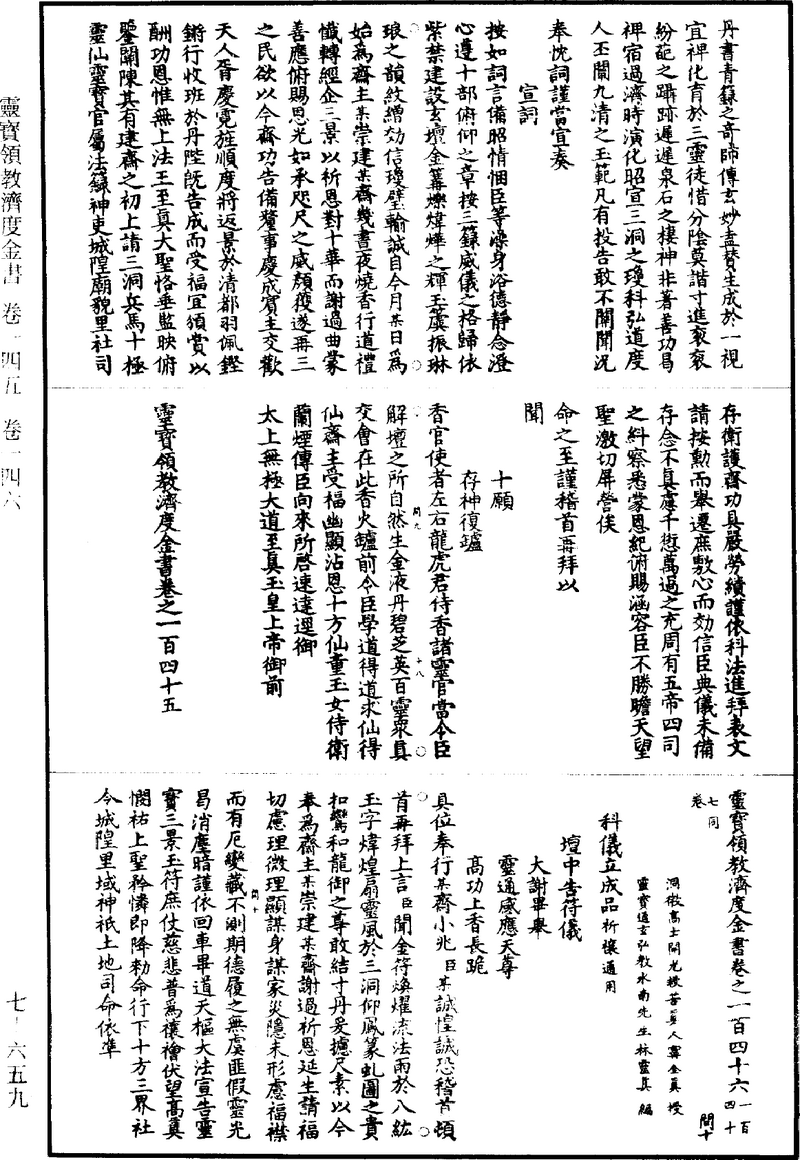 丹書青籙之奇師傳玄妙盍賛生成於一視
宜裨化育於三靈徒惜分陰莫諧寸進衮衮
紛葩之躡跡遲遲泉石之棲神非著善功曷
裨宿過濟時演化昭宣三洞之瓊科弘道度
人丕闡九清之玉範凡有投告敢不闡聞況
奉忱詞謹當宣奏
宣詞
按如詞言備昭情悃臣等澡身浴德靜念澄
心遵十部俯仰之章按三籙威儀之格歸依
紫禁建設玄壇金篝爍煒燁之輝玉虡振琳
琅之韻紋繒効信瓊璧輸誠自今月某日爲
始爲齋主某崇建某齋幾晝夜燒香行道禮
懺轉經企三景以祈恩對十華而謝過曲蒙
善應俯賜恩光如承咫尺之威顏獲遂再三
之民欲以今齋功告備醮事慶成賓主交歡
天人胥慶霓旌順度將返景於清都羽佩鏗
鏘行收班於丹陛旣告成而受福宜頒賞以
酬功恩惟無上法王至真大聖恪垂監映俯
鑒關陳其有建齋之初上請三洞兵馬十極
靈仙靈寶官屬法籙神吏城隍廟貌里社司
存衛護齋功具嚴勞績謹依科法進拜表文
請按勳而舉遷庶敷心而効信臣典儀未備
存念不真慮千愆萬過之充周有五帝四司
之糾察悉蒙恩紀俯賜涵容臣不勝瞻天望
聖激切屏營俟
命之至謹稽首再拜以
聞
十願
存神復爐
香官使者左右龍虎君侍香諸靈官當令臣
解壇之所自然生金液丹碧芝英百靈衆真
交會在此香火爐前令臣學道得道求仙得
仙齋主受福幽顯沾恩十方仙童玉女侍衛
蘭煙傳臣向來所啓速達逕御
太上無極大道至真玉皇上帝御前
靈寶領教濟度金書卷之一百四十五
靈寶領教濟度金書卷之一百四十六 一百四十
七同卷
問十
洞微高士開光救苦真人甯全真授
靈寶通玄弘教水南先生林靈真編
科儀立成品 祈禳通用
壇中告符儀
大謝畢舉
靈通感應天尊
高功上香長跪
具位奉行某齋小兆臣某誠惶誠恐稽首頓
首再拜上言臣聞金符煥耀流法雨於八紘
玉字煒煌扇靈風於三洞仰鳳篆虬圖之貴
扣鸞和龍御之尊敢結寸丹爰攄尺素以今
奉爲齋主某崇建某齋謝過祈恩延生請福
切慮理微理顯謀身謀家災隱未形慮福襟
而有厄變藏不測期德履之無虞匪假靈光
曷消塵暗謹依回車畢道天樞大法宣告靈
寶三景玉符庶仗慈悲普爲禳禬伏望高真
憫祐上聖矜憐即降勑命行下十方三界社
令城隍里域神祇土地司命依準
靈寶領教濟度金書 卷一四五 卷一四六
七-六五九